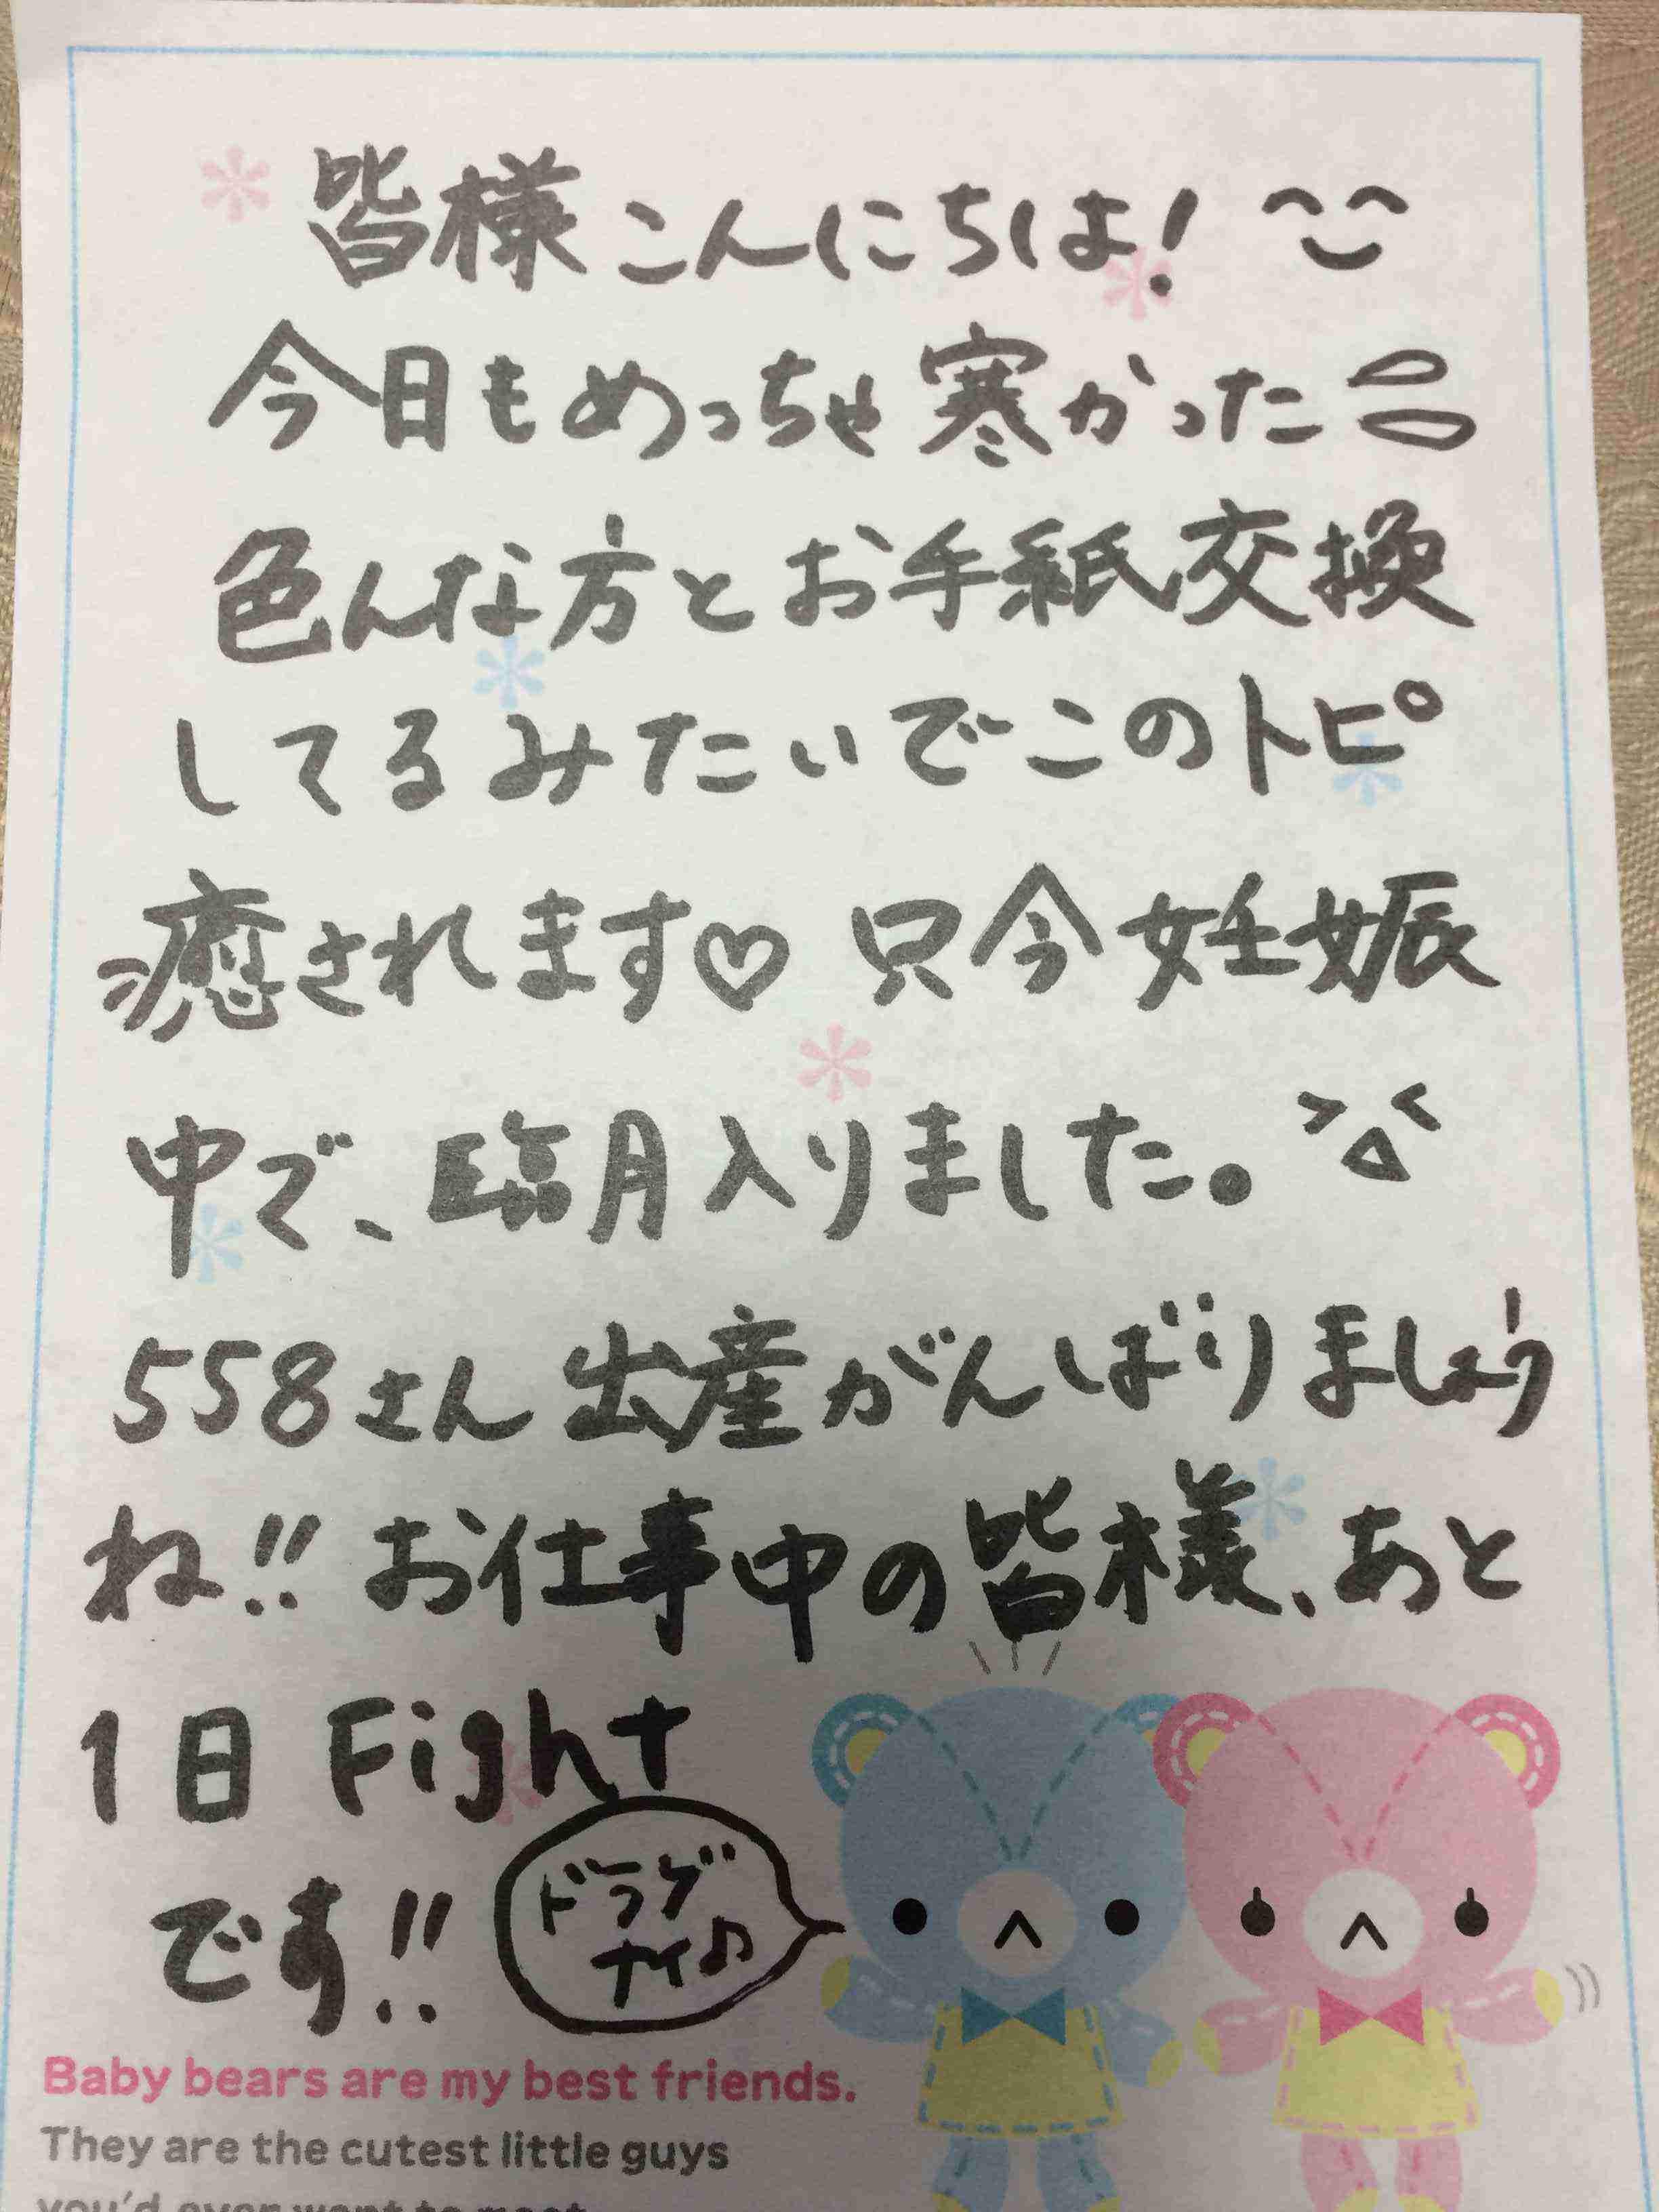 皆様こんにちは!
今日もめっちゃ寒かった
色んな方とお手紙交換
してるみたいでこのトピ
癒されます♡ 只今妊娠
中で、臨月入りました。
558さん出産がんばりましょう
ね!! お仕事中の皆様、あと
1日 Fight
です!!
ドラゲ
ナイ♪
Baby bears are my best friends.
They are the cutest little guys
you'd ever want to meet